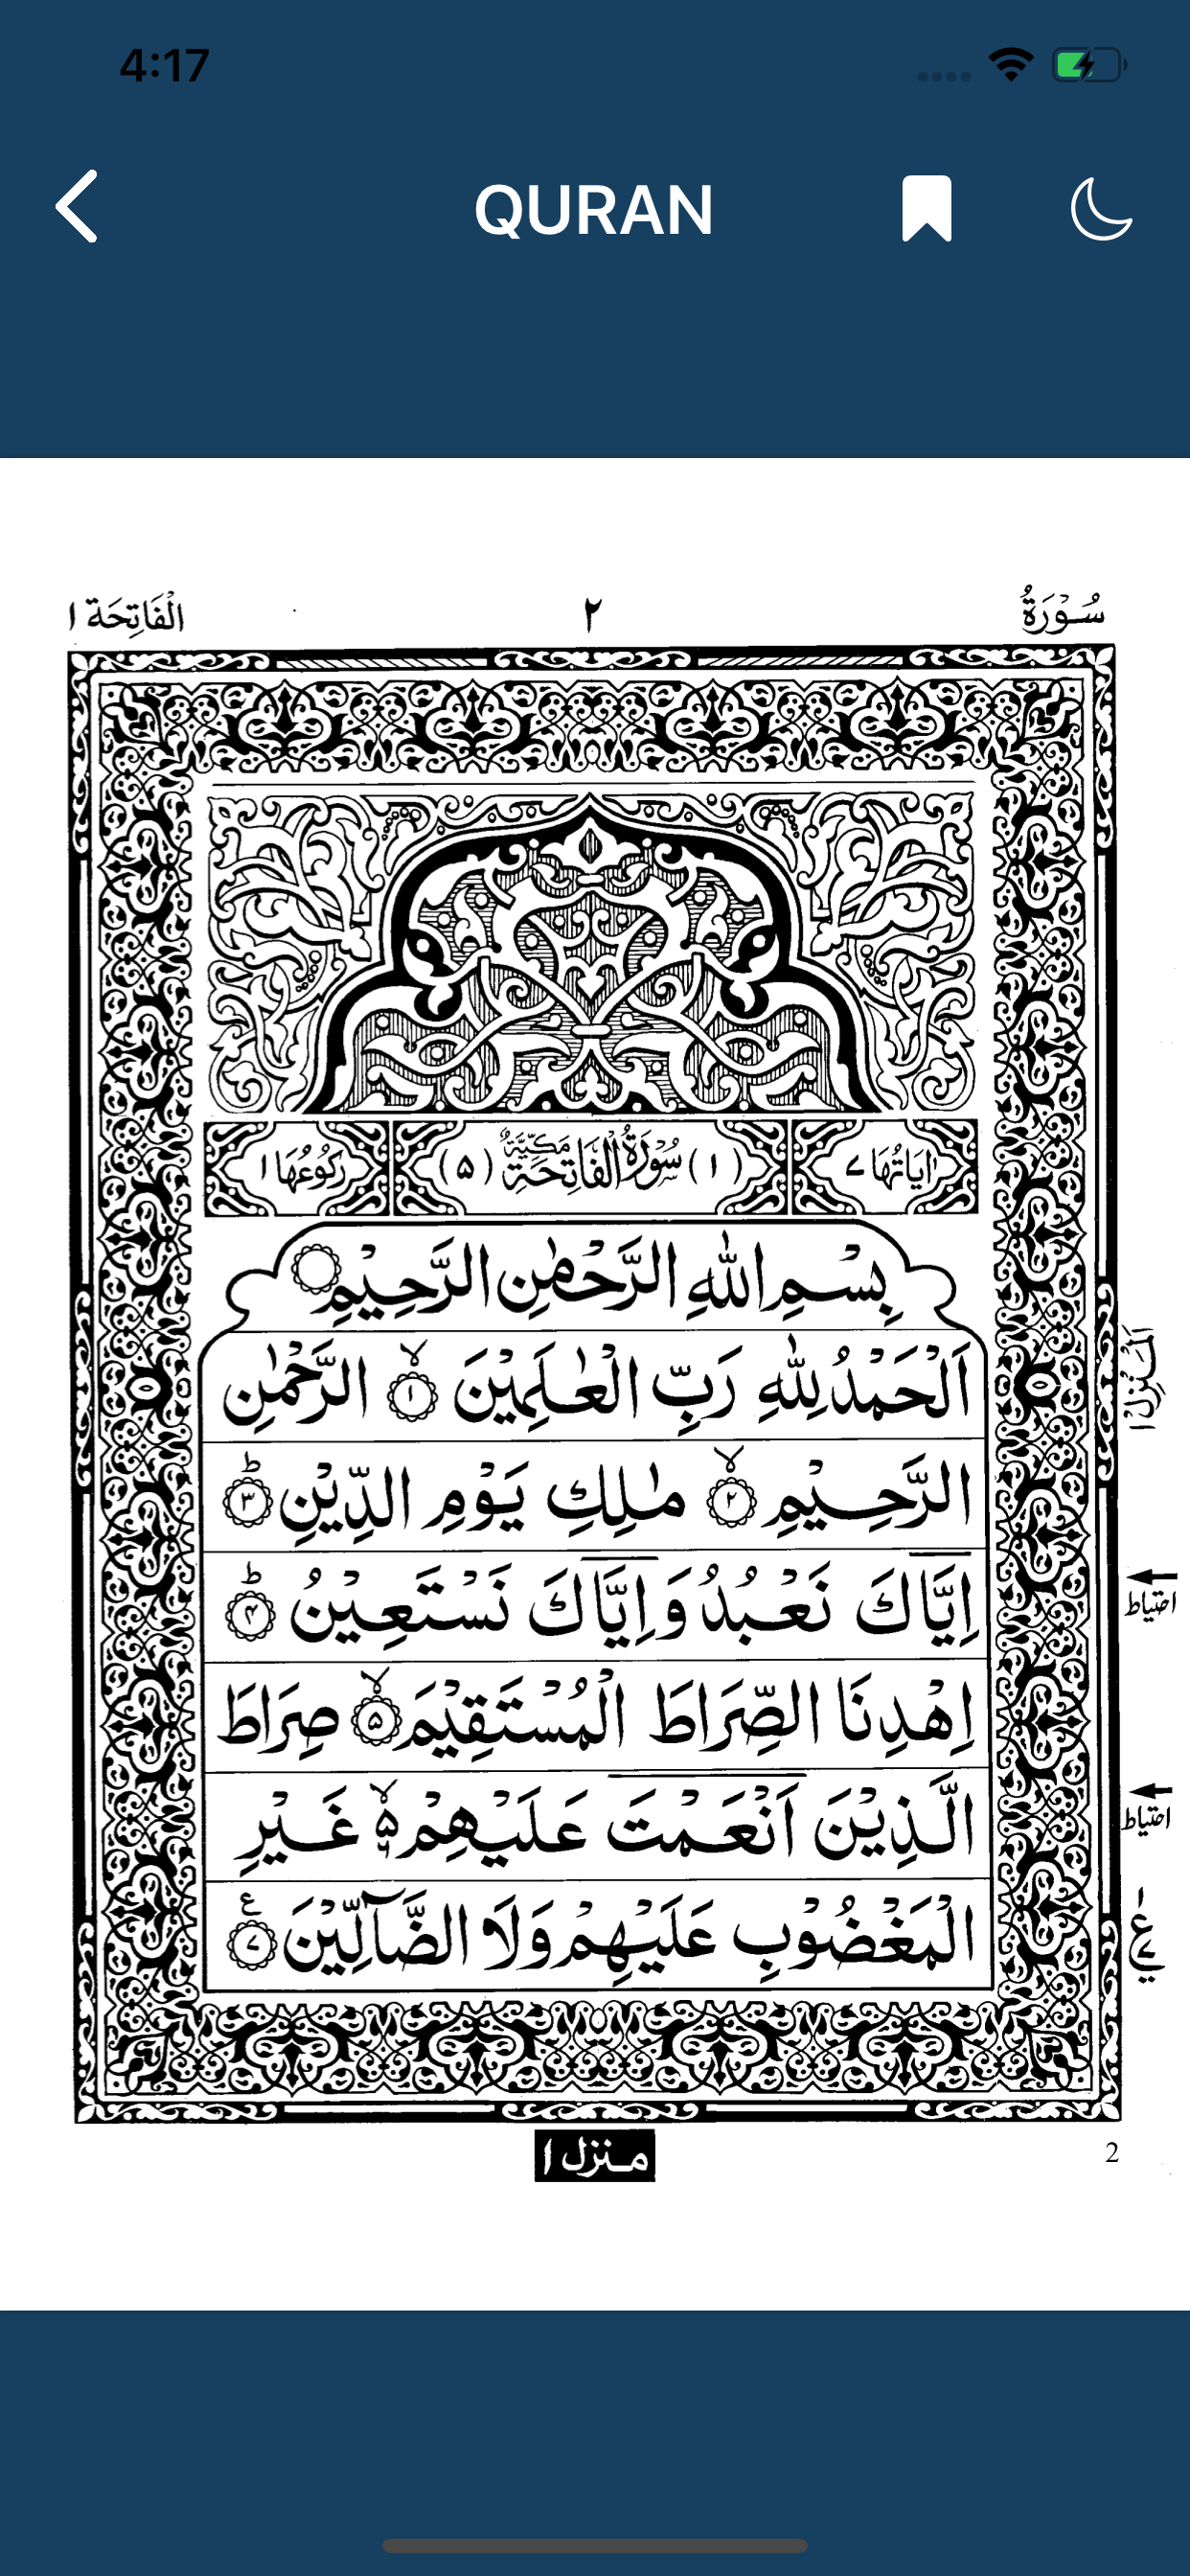 4:17
QURAN
سُوْرَةُ ٢ الْفَاتِحَة ١
اٰيَاتُهَا ٧ (١) سُوْرَةُ الْفَاتِحَةِ مَكِّيَّةٌ (٥) رُكُوْعُهَا ١
بِسْمِ اللّٰهِ الرَّحْمٰنِ الرَّحِيْمِ
اَلْحَمْدُ لِلّٰهِ رَبِّ الْعٰلَمِيْنَ ۙ ١ الرَّحْمٰنِ
الرَّحِيْمِ ۙ ٢ مٰلِكِ يَوْمِ الدِّيْنِ ؕ ٣
اِيَّاكَ نَعْبُدُ وَاِيَّاكَ نَسْتَعِيْنُ ؕ ۴
اِهْدِنَا الصِّرَاطَ الْمُسْتَقِيْمَ ۙ ۵ صِرَاطَ
الَّذِيْنَ اَنْعَمْتَ عَلَيْهِمْ ۙ۵ ٦ غَيْرِ
الْمَغْضُوْبِ عَلَيْهِمْ وَلَا الضَّآلِّيْنَ ع ٧
اَلْمَنْزِل ١
احتیاط
احتیاط
١ ع ٧
منزل ١
2